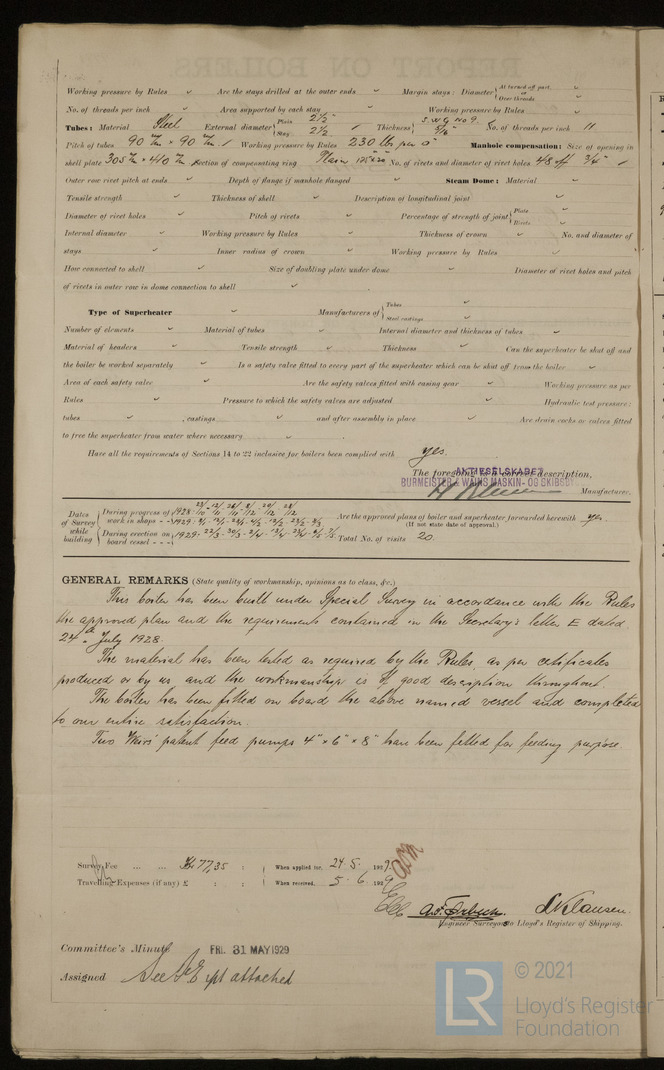 Working pressure by Rules ✓ Are the stays drilled at the outer ends ✓ Margin stays: Diameter { At turned off part, or Over threads ✓
No. of threads per inch ✓ Area supported by each stay ✓ Working pressure by Rules ✓
Tubes: Material Steel External diameter { Plain 2½ Stay 2½ Thickness { S.W.G No 9. 5/16 No. of threads per inch 11
Pitch of tubes 90 m/m × 90 m/m Working pressure by Rules 230 lbs per □" Manhole compensation: Size of opening in
shell plate 305 m/m × 410 m/m Section of compensating ring Plain No. of rivets and diameter of rivet holes 48 off 3/4"
Outer row rivet pitch at ends ✓ Depth of flange if manhole flanged ✓ Steam Dome: Material ✓
Tensile strength ✓ Thickness of shell ✓ Description of longitudinal joint ✓
Diameter of rivet holes ✓ Pitch of rivets ✓ Percentage of strength of joint { Plate ✓ Rivets ✓
Internal diameter ✓ Working pressure by Rules ✓ Thickness of crown ✓ No. and diameter of
stays ✓ Inner radius of crown ✓ Working pressure by Rules ✓
How connected to shell ✓ Size of doubling plate under dome ✓ Diameter of rivet holes and pitch
of rivets in outer row in dome connection to shell ✓
Type of Superheater ✓ Manufacturers of { Tubes ✓ Steel castings ✓
Number of elements ✓ Material of tubes ✓ Internal diameter and thickness of tubes ✓
Material of headers ✓ Tensile strength ✓ Thickness ✓ Can the superheater be shut off and
the boiler be worked separately ✓ Is a safety valve fitted to every part of the superheater which can be shut off from the boiler ✓
Area of each safety valve ✓ Are the safety valves fitted with easing gear ✓ Working pressure as per
Rules ✓ Pressure to which the safety valves are adjusted ✓ Hydraulic test pressure:
tubes ✓ castings ✓ and after assembly in place ✓ Are drain cocks or valves fitted
to free the superheater from water where necessary ✓
Have all the requirements of Sections 14 to 22 inclusive for boilers been complied with yes.
The foregoing is a correct description,
AKTIESELSKABET
BURMEISTER & WAINS MASKIN- OG SKIBSB
Manufacturer.
Dates of Survey while building { During progress of work in shops - - 1928 1929
Are the approved plans of boiler and superheater forwarded herewith yes.
(If not state date of approval.)
During erection on board vessel - - - 1929 Total No. of visits 20
GENERAL REMARKS (State quality of workmanship, opinions as to class, &c.)
This boiler has been built under Special Survey in accordance with the Rules
the approved plan and the requirements contained in the Secretary's letter E dated
24th July 1928.
The material has been tested as required by the Rules, as per certificates
produced or by us and the workmanship is of good description throughout.
The boiler has been fitted on board the above named vessel and completed
to our entire satisfaction.
Two Weirs' patent feed pumps 4" × 6" × 8" have been fitted for feeding purpose.
Survey Fee ... ... Kr 77,35 : When applied for, 24.5. 1929.
Travelling Expenses (if any) £ : : When received, 5.6. 1929
Engineer Surveyors to Lloyd's Register of Shipping.
Committee's Minute FRI. 31 MAY 1929
Assigned See F.E. rpt attached
© 2021
LR Lloyd's Register
Foundation